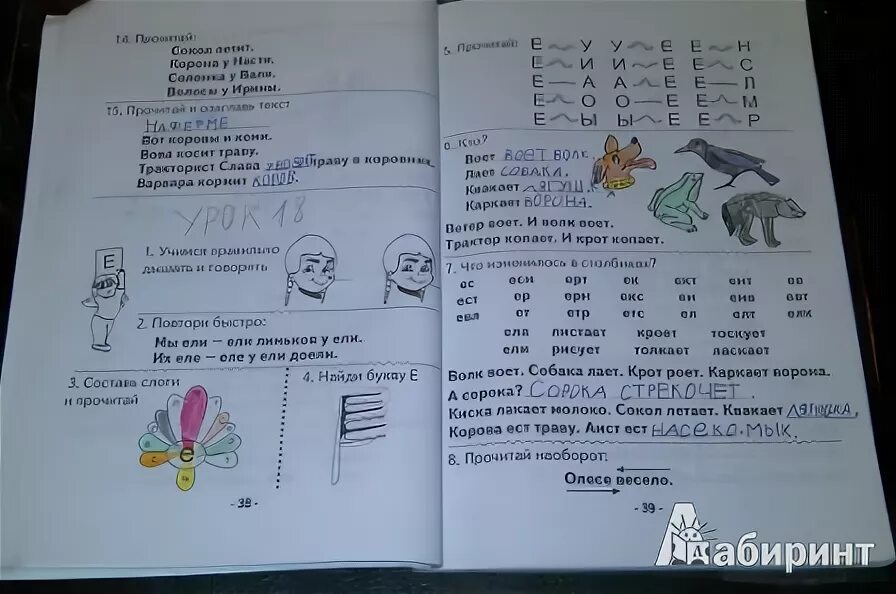 14. Прочитай:
Сокол летит.
Корона у Насти.
Солонка у Вали.
Волосы у Ирины.
15. Прочитай и озаглавь текст
НА ФЕРМЕ
Вот коровы и кони.
Вова косит траву.
Тракторист Слава увозит траву в коровник.
Варвара кормит коров.
УРОК 18
1. Учимся правильно
дышать и говорить
Е
2. Повтори быстро:
Мы ели – ели линьков у ели.
Их еле – еле у ели доели.
3. Составь слоги
и прочитай
е
4. Найди букву Е
- 38 -
5. Прочитай:
Е У У Е Е Н
Е И И Е Е С
Е А А Е Е Л
Е О О Е Е М
Е Ы Ы Е Е Р
6. Кто?
Воет ВОЕТ ВОЛК.
Лает СОБАКА.
Квакает ЛЯГУШ.
Каркает ВОРОНА.
Ветер воет. И волк воет.
Трактор копает. И крот копает.
7. Что изменилось в столбиках?
ос
ест ер
от
ела листает кроет тоскует
ели рисует толкает ласкает
Волк воет. Собака лает. Крот роет. Каркает ворона.
А сорока? СОРОКА СТРЕКОЧЕТ.
Киска лакает молоко. Сокол летает. Квакает ЛЯГУШКА.
Корова ест траву. Аист ест НАСЕКО.МЫК.
8. Прочитай наоборот:
Олесе весело.
- 39 -
Лабиринт